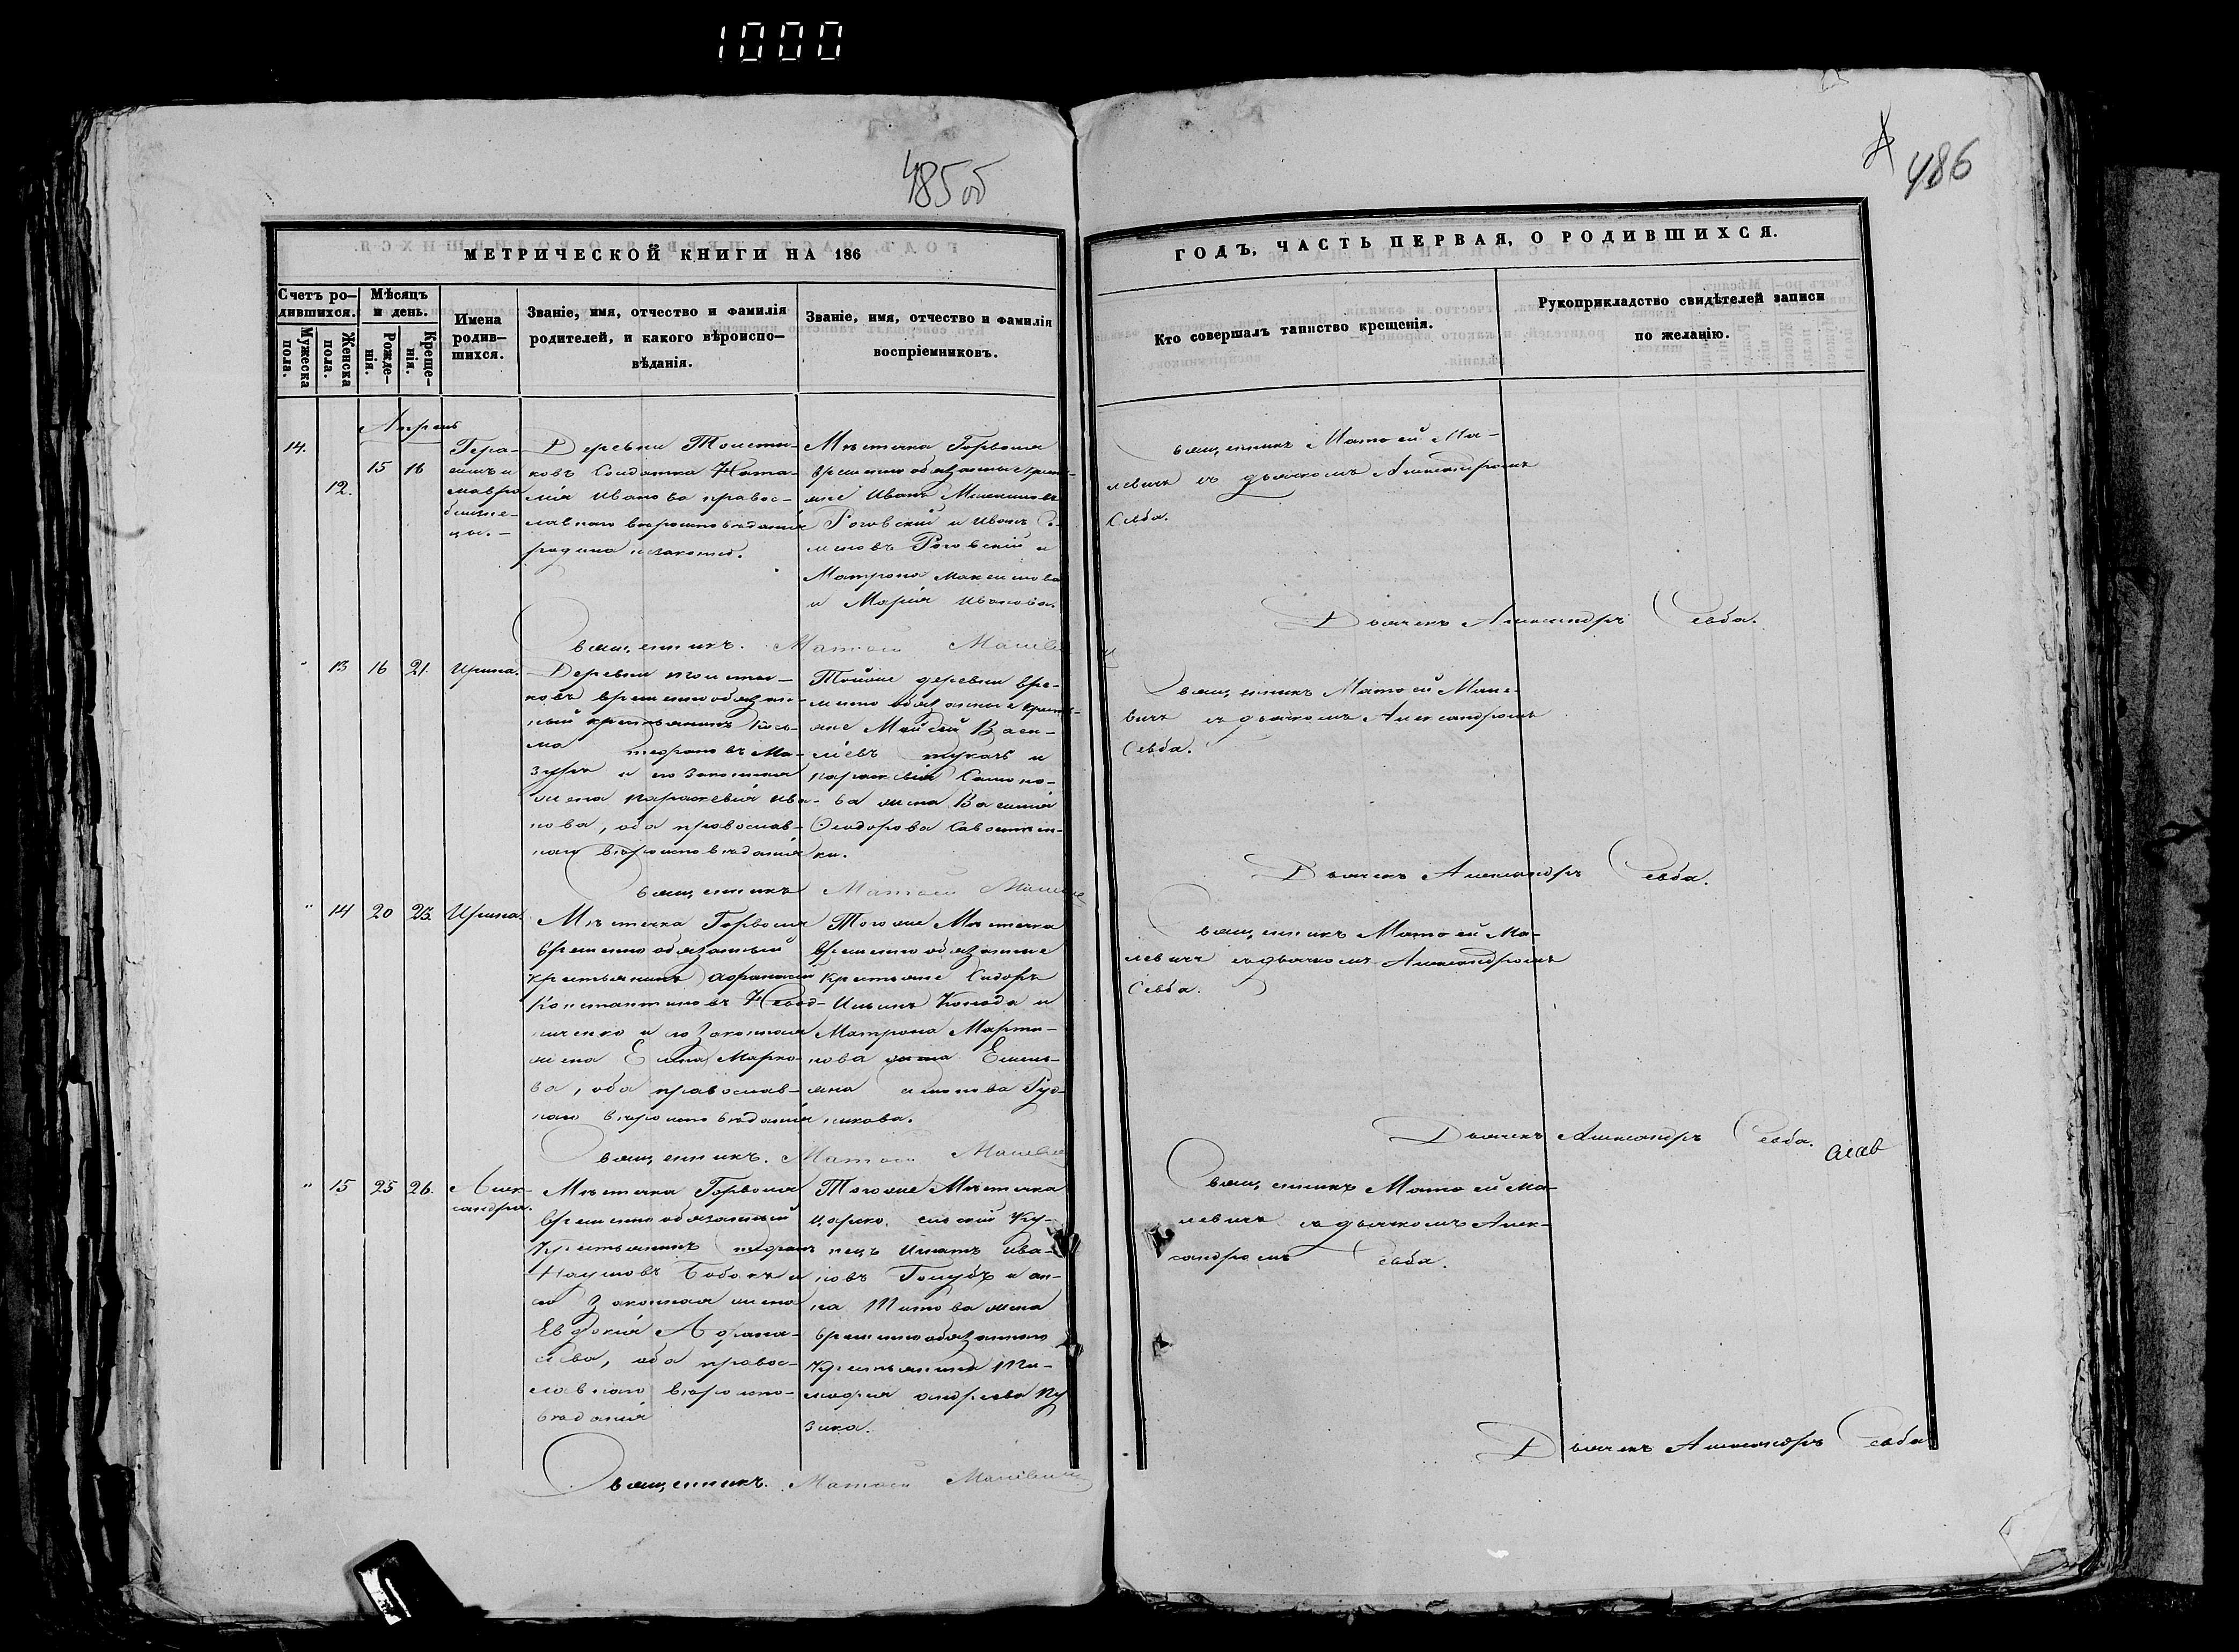 1000
485об
486
МЕТРИЧЕСКОЙ КНИГИ НА 186
Счетъ ро-
дившихся.
Мужеска пола.
Женска пола.
Мѣсяцъ
и день.
Рожде-
нія.
Креще-
нія.
Имена
родив-
шихся.
Званіе, имя, отчество и фамилія
родителей, и какого вѣроиспо-
вѣданія.
Званіе, имя, отчество и фамилія
воспріемниковъ.
Апрель
14.
12.
15 16
Гера-
симъ и
мавра
близне-
цы.
Деревни Толсти-
ковъ Солдатка Ната-
лія Иванова правос-
лавнаго вѣроисповѣданія
родила незаконно.
Мѣстечка Горволя
временнообязанные кресть-
яне Иванъ
Роговскій и Иванъ Се-
меновъ Роговскій и
Матрона Максимова
и Марія Иванова.
Священникъ. Матѳей Малевичъ
" 13 16 21. Ирина.
Деревни толсти-
ковъ временнообязан-
ный крестьянинъ Кось-
ма Ма-
зуръ и его законная
жена параскевія ива-
нова, оба православ-
наго вѣроисповѣданія
Тойже деревни вре-
меннообязанные кресть-
яне Мойсей Васи-
ліевъ и
параскевія
ва жена Василія
Ѳеодорова
ки.
Священникъ Матѳей Малевичъ
" 14 20 25. Ирина.
Мѣстечка Горволя
временнообязанный
крестьянинъ Афанасій
Константиновъ
и его Законная
жена Марко-
ва, оба православ-
наго вѣроисповѣданія
Того же Мѣстечка
временнообязанные
крестьяне Сидоръ
Ильинъ Колода и
Матрона Марти-
нова жена Емель-
яна Руд-
никова.
Священникъ. Матѳей Малевичъ
" 15 25 26. Алек-
сандра.
Мѣстечка Горволя
временнообязанный
Крестьянинъ
Наумовъ Бобокъ и
его Законная жена
Евдокія Афана-
сіева, оба правос-
лавнаго вѣроиспо-
вѣданія
Того же Мѣстечка
Ку-
пецъ Игнатъ Ива-
новъ Голубъ и ан-
на Титова жена
временнообязаннаго
Крестьянина Ти-
мофея андреева Ку
зика.
Священникъ. Матѳей Малевичъ
ГОДЪ, ЧАСТЬ ПЕРВАЯ, О РОДИВШИХСЯ.
Кто совершалъ таинство крещенія.
Рукоприкладство свидѣтелей записи
по желанію.
Священникъ Матѳей Ма-
левичъ съ дьячкомъ Александромъ
Севба.
Дьячекъ Александръ Севба.
Священникъ Матѳей Мале-
вичъ съ дьячкомъ Александромъ
Севба.
Дьячекъ Александръ Севба.
Священникъ Матѳей Ма-
левичъ съ дьячкомъ Александромъ
Севба.
Дьячекъ Александръ Севба.
Священникъ Матѳей Ма-
левичъ съ дьячкомъ Алек-
сандромъ Севба.
Дьячекъ Александръ Севба